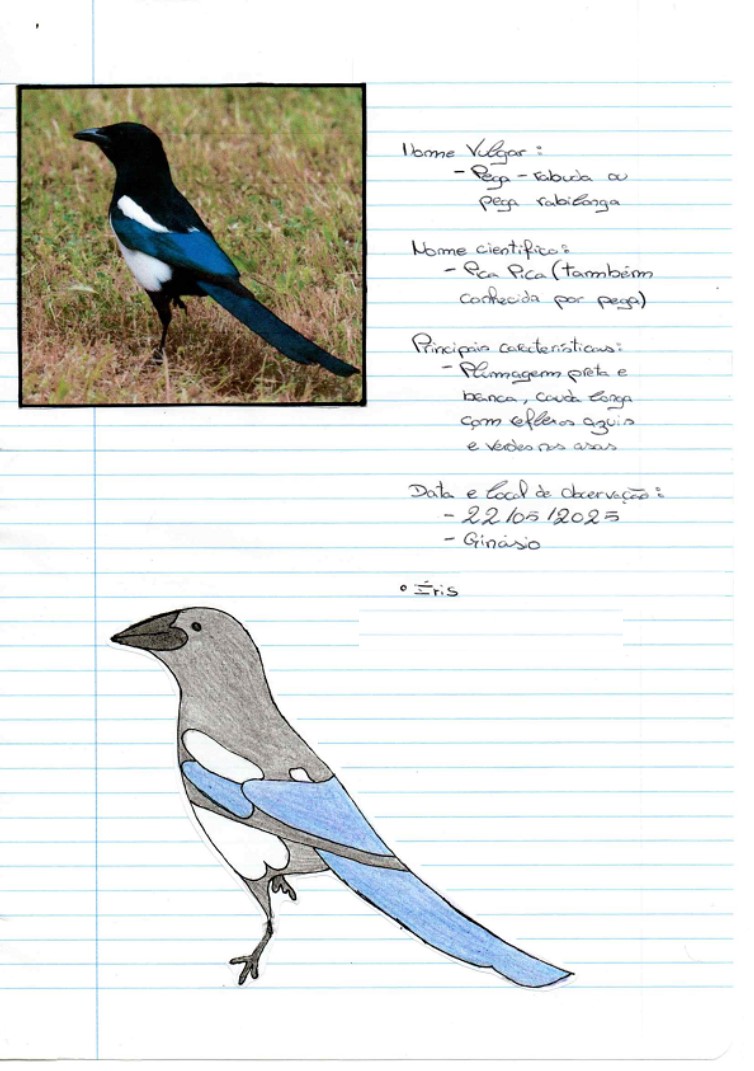 Nome Vulgar :
- Pega - rabuda ou
pega rabilonga
Nome científico :
- Pica Pica (também
conhecida por pega)
Principais características :
- Plumagem preta e
banca, cauda longa
com reflexos azuis
e verdes nas asas
Data e local de observação :
- 22/05/2025
- Ginásio
• Íris